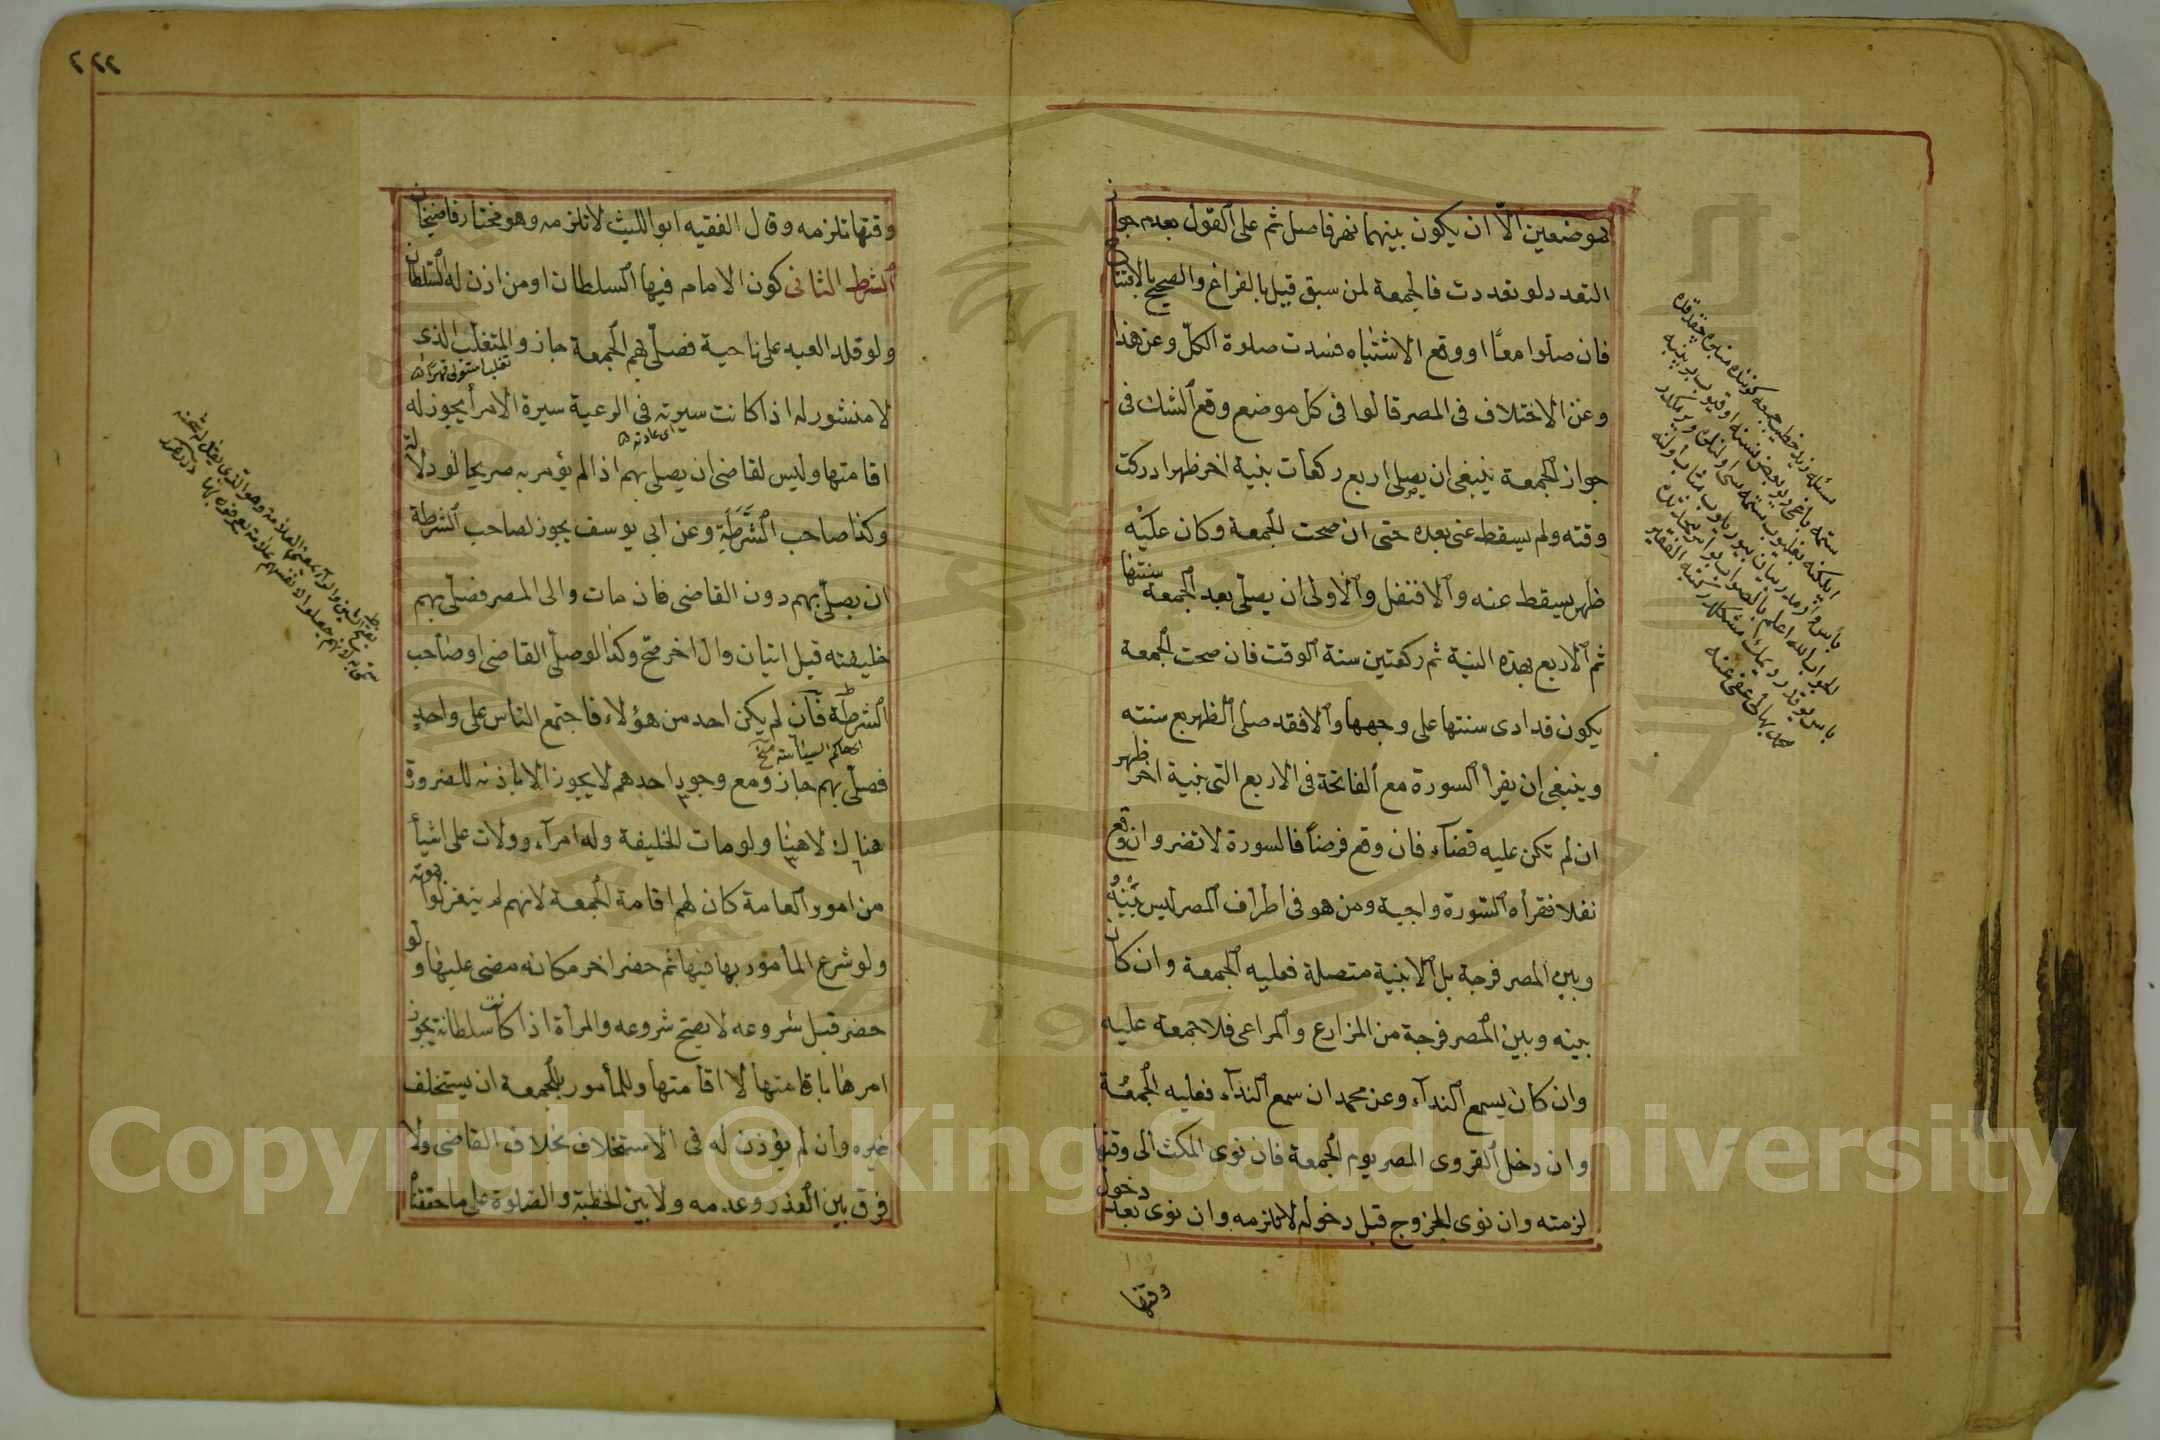 موضعين الا ان يكون بينهما نهر فاصل ثم على القول بعدم جواز
التعدد لو تعددت فالجمعة لمن سبق قيل بالفراغ والصحيح بالافتتاح
فان صلوا معا او وقع الاشتباه فسدت صلوة الكل وعن هذا
وعن الاختلاف فى المصر قالوا فى كل موضع وقع الشك فى
جواز الجمعة ينبغى ان يصلى اربع ركعات بنية اخر ظهر ادركت
وقته ولم يسقط عنى بعده حتى ان صحت الجمعة وكان عليه
ظهر يسقط عنه والا فنفل والاولى ان يصلى بعد الجمعة سنتها
ثم الاربع بهذه النية ثم ركعتين سنة الوقت فان صحت الجمعة
يكون قد ادى سنتها على وجهها والا فقد صلى الظهر مع سنته
وينبغى ان يقرأ السورة مع الفاتحة فى الاربع التى بنية اخر ظهر
ان لم تكن عليه قضآء فان وقع فرضا فالسورة لا تضر وان وقع
نفلا فقرأه السورة واجبة ومن هو فى اطراف المصر ليس بينه
وبين المصر فرجة بل الابنية متصلة فعليه الجمعة وان كان
بينه وبين المصر فرجة من المزارع والمراعى فلا جمعة عليه
وان كان يسمع الندآء وعن محمد ان سمع الندآء فعليه الجمعة
وان دخل القروى المصر يوم الجمعة فان نوى المكث الى وقتها
لزمته وان نوى الخروج قبل دخوله لا تلزمه وان نوى بعد دخول
وقتها
٢٢٢
وقتها تلزمه وقال الفقيه ابو الليث لا تلزمه وهو مختار قاضيخان
الشرط الثانى كون الامام فيها السلطان او من اذن له السلطان
ولو قلد العبد على ناحية فصلى بهم الجمعة جاز والمتغلب الذى
تغلب استولى قهرا
لا منشور له اذا كانت سيرته فى الرعية سيرة الامرأ يجوز له
اى عادته
اقامتها وليس لقاضى ان يصلى بهم اذا لم يؤمر به صريحا او دلالة
وكذا صاحب الشرطة وعن ابى يوسف يجوز لصاحب الشرطة
ان يصلى بهم دون القاضى فان مات والى المصر فصلى بهم
خليفته قبل اتيان وال اخر صح وكذا لو صلى القاضى او صاحب
الشرطة فان لم يكن احد من هؤلاء فاجتمع الناس على واحد
اى حاكم السياسة
فصلى بهم جاز ومع وجود احدهم لا يجوز الا باذنه للضرورة
هناك لا هنا ولو مات الخليفة وله امرآء وولات على اشيأ
من امور العامة كان لهم اقامة الجمعة لانهم لم ينعزلوا بموته
ولو شرع المأمور بها فيها ثم حضر اخر مكانه مضى عليها ولو
حضر قبل شروعه لا يصح شروعه والمرأة اذا كانت سلطانة يجوز
امرها باقامتها لا اقامتها وللمأمور بالجمعة ان يستخلف
غيره وان لم يؤذن له فى الاستخلاف بخلاف القاضى ولا
فرق بين العذر وعدمه ولا بين الخطبة والصلوة على ما حققناه
Copyright © King Saud University